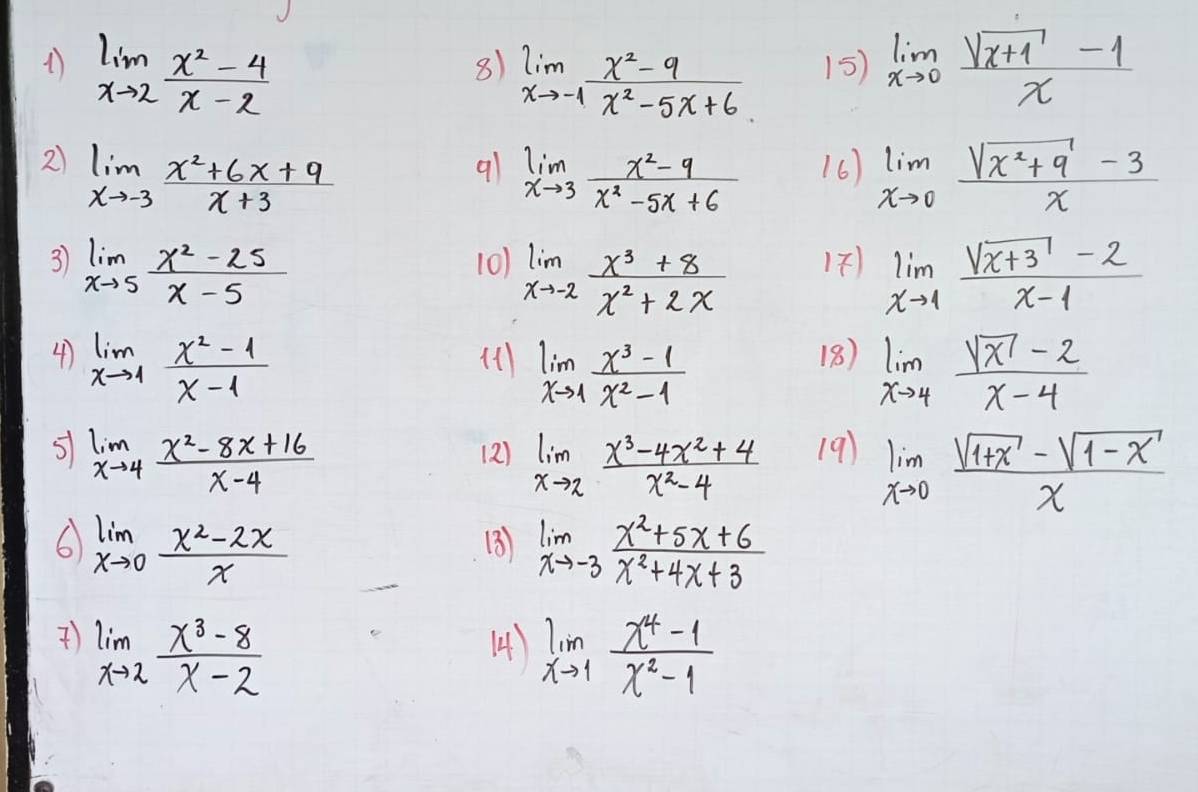 1) lim x→2 (x² - 4)/(x - 2)
2) lim x→-3 (x² + 6x + 9)/(x + 3)
3) lim x→5 (x² - 25)/(x - 5)
4) lim x→1 (x² - 1)/(x - 1)
5) lim x→4 (x² - 8x + 16)/(x - 4)
6) lim x→0 (x² - 2x)/x
7) lim x→2 (x³ - 8)/(x - 2)
8) lim x→-1 (x² - 9)/(x² - 5x + 6)
9) lim x→3 (x² - 9)/(x² - 5x + 6)
10) lim x→-2 (x³ + 8)/(x² + 2x)
11) lim x→1 (x³ - 1)/(x² - 1)
12) lim x→2 (x³ - 4x² + 4)/(x² - 4)
13) lim x→-3 (x² + 5x + 6)/(x² + 4x + 3)
14) lim x→1 (x⁴ - 1)/(x² - 1)
15) lim x→0 (√(x+1) - 1)/x
16) lim x→0 (√(x² + 9) - 3)/x
17) lim x→1 (√(x+3) - 2)/(x - 1)
18) lim x→4 (√x - 2)/(x - 4)
19) lim x→0 (√(1+x) - √(1-x))/x